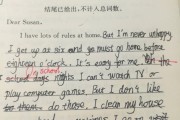 结尾已给出,不计入总词数。
Dear Susan,
I have lots of rules at home. But I'm never unhappy.
I get up at six and go must go home before
eighteen o'clock. It's easy for me.
my school
school days nights I can't watch TV or
play computer games. But I don't like
to them do those. I clean my house